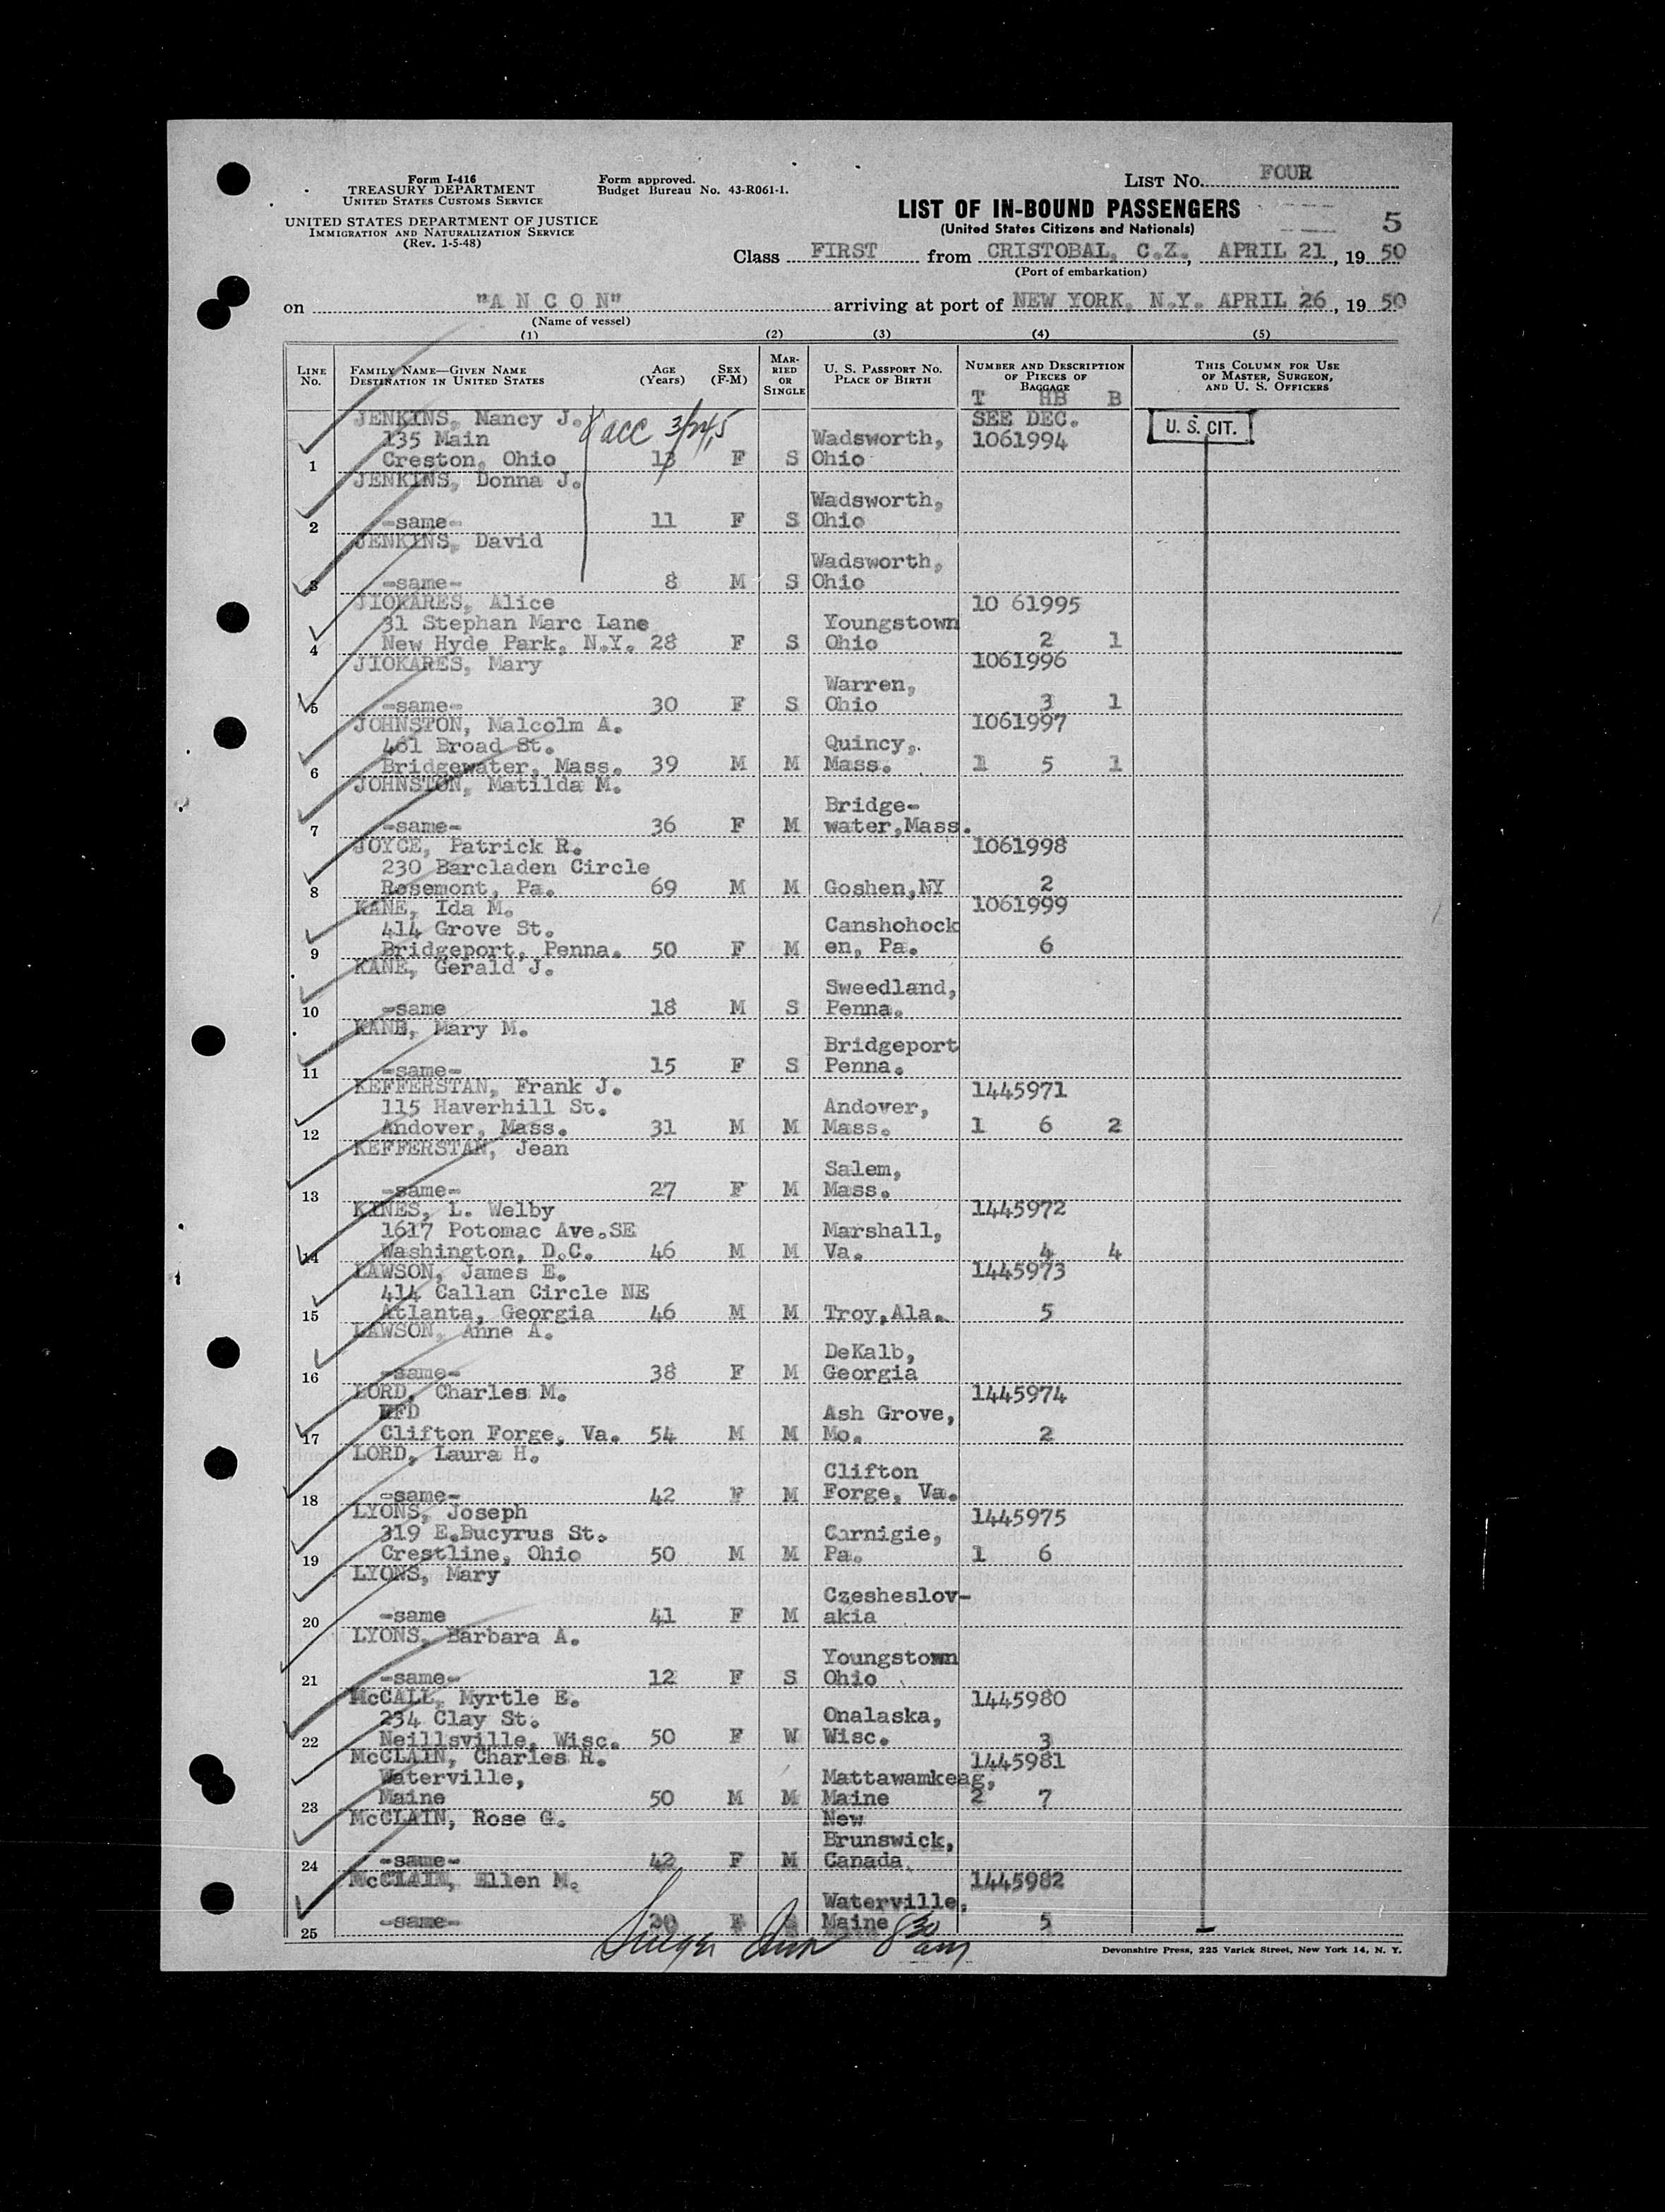 Form I-416
TREASURY DEPARTMENT
UNITED STATES CUSTOMS SERVICE
UNITED STATES DEPARTMENT OF JUSTICE
IMMIGRATION AND NATURALIZATION SERVICE
(Rev. 1-5-48)
Form approved.
Budget Bureau No. 43-R061-1.
LIST No. FOUR
LIST OF IN-BOUND PASSENGERS
(United States Citizens and Nationals)
5
Class FIRST from CRISTOBAL, C.Z., APRIL 21, 19 50
(Port of embarkation)
on "A N C O N" arriving at port of NEW YORK, N.Y. APRIL 26, 19 50
(Name of vessel)
(1) (2) (3) (4) (5)
LINE No.
FAMILY NAME—GIVEN NAME
DESTINATION IN UNITED STATES
AGE (Years)
SEX (F-M)
MARRIED OR SINGLE
U. S. PASSPORT NO.
PLACE OF BIRTH
NUMBER AND DESCRIPTION OF PIECES OF BAGGAGE
T HB B
THIS COLUMN FOR USE OF MASTER, SURGEON, AND U. S. OFFICERS
JENKINS, Nancy J. acc SEE DEC.
135 Main Wadsworth, 1061994 U. S. CIT.
1 Creston, Ohio 13 F S Ohio
JENKINS, Donna J.
Wadsworth,
2 -same- 11 F S Ohio
JENKINS, David
Wadsworth,
3 -same- 8 M S Ohio
JIOKARES, Alice 10 61995
31 Stephan Marc Lane Youngstown
4 New Hyde Park, N.Y. 28 F S Ohio 2 1
JIOKARES, Mary 1061996
Warren,
5 -same- 30 F S Ohio 3 1
JOHNSTON, Malcolm A. 1061997
461 Broad St. Quincy,
6 Bridgewater, Mass. 39 M M Mass. 1 5 1
JOHNSTON, Matilda M.
Bridge-
7 -same- 36 F M water,Mass.
JOYCE, Patrick R. 1061998
230 Barcladen Circle
8 Rosemont, Pa. 69 M M Goshen,NY 2
KANE, Ida M. 1061999
414 Grove St. Canshohock
9 Bridgeport, Penna. 50 F M en, Pa. 6
KANE, Gerald J.
Sweedland,
10 -same 18 M S Penna.
KANE, Mary M.
Bridgeport
11 -same- 15 F S Penna.
KEFFERSTAN, Frank J. 1445971
115 Haverhill St. Andover,
12 Andover, Mass. 31 M M Mass. 1 6 2
KEFFERSTAN, Jean
Salem,
13 -same- 27 F M Mass.
KINES, L. Welby 1445972
1617 Potomac Ave.SE Marshall,
14 Washington, D.C. 46 M M Va. 4 4
LAWSON, James E. 1445973
414 Callan Circle NE
15 Atlanta, Georgia 46 M M Troy,Ala. 5
LAWSON, Anne A.
DeKalb,
16 -same- 38 F M Georgia
LORD, Charles M. 1445974
RFD Ash Grove,
17 Clifton Forge, Va. 54 M M Mo. 2
LORD, Laura H.
Clifton
18 -same- 42 F M Forge, Va.
LYONS, Joseph 1445975
319 E.Bucyrus St. Carnigie,
19 Crestline, Ohio 50 M M Pa. 1 6
LYONS, Mary
Czesheslov-
20 -same 41 F M akia
LYONS, Barbara A.
Youngstown
21 -same- 12 F S Ohio
McCALL, Myrtle E. 1445980
234 Clay St. Onalaska,
22 Neillsville, Wisc. 50 F W Wisc. 3
McCLAIN, Charles R. 1445981
Waterville, Mattawamkeag,
23 Maine 50 M M Maine 2 7
McCLAIN, Rose G. New
Brunswick,
24 -same- 42 F M Canada
McCLAIN, Ellen M. 1445982
Waterville,
25 -same- 20 F Maine 5
8 30 am
Devonshire Press, 225 Varick Street, New York 14, N. Y.